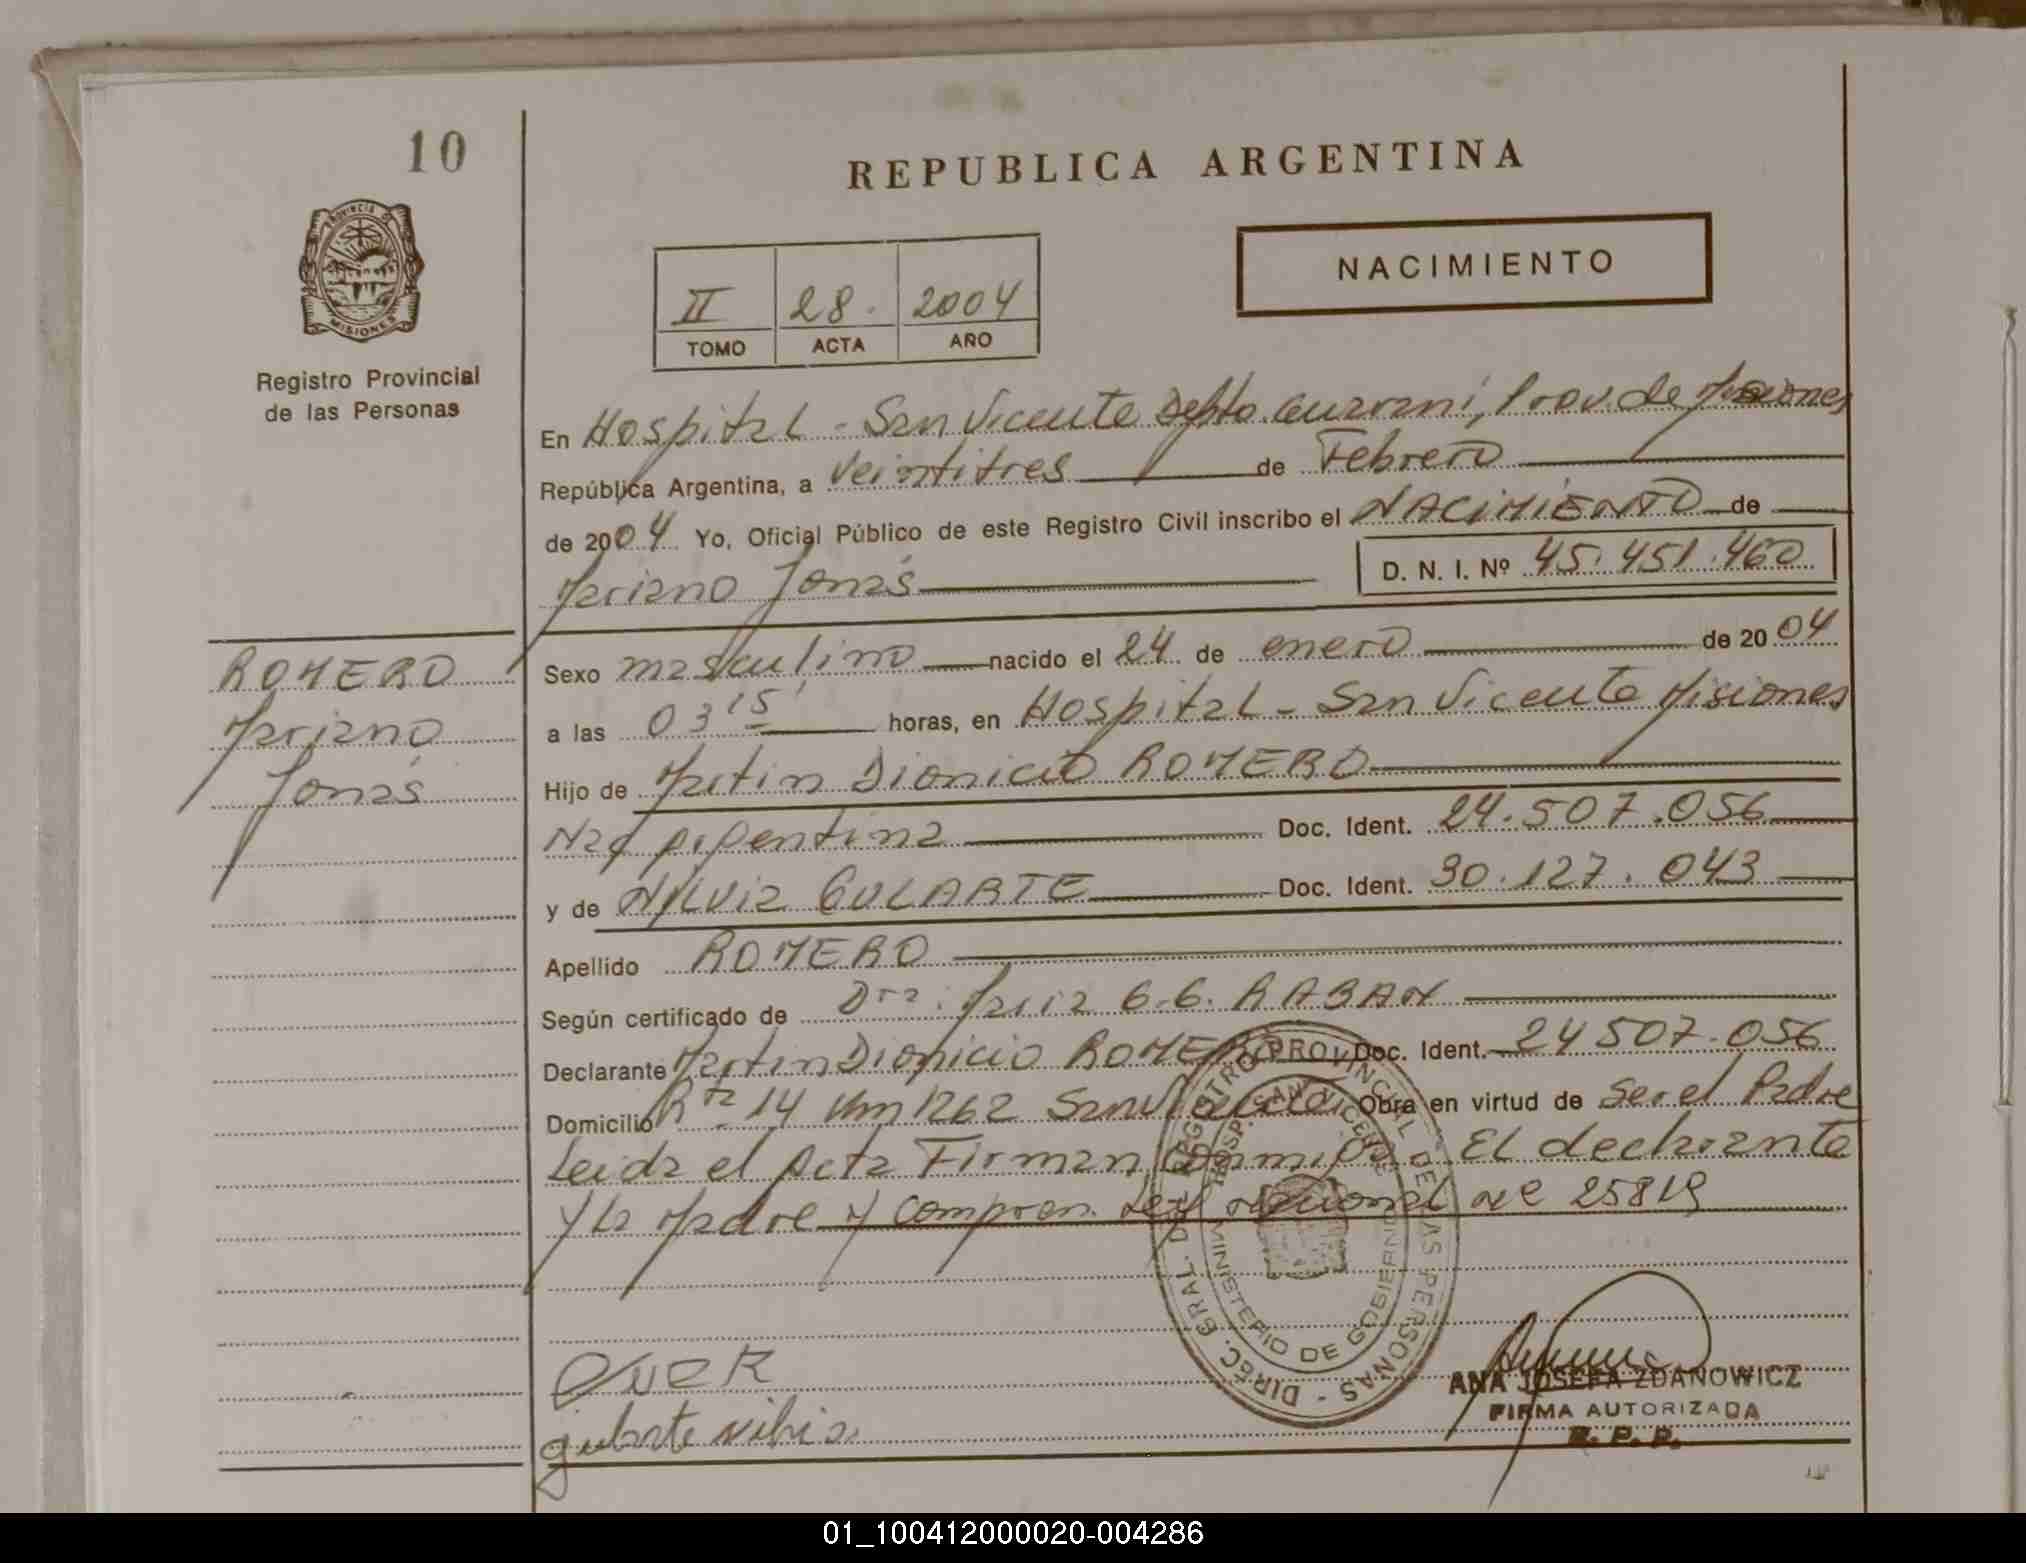 10
REPUBLICA ARGENTINA
PROVINCIA DE
MISIONES
Registro Provincial
de las Personas
NACIMIENTO
II 28. 2004
TOMO ACTA AÑO
En Hospital - San Vicente Depto. Guarani, Prov. de Misiones
República Argentina, a Veintitres de Febrero
de 2004 Yo, Oficial Público de este Registro Civil inscribo el NACIMIENTO de
Mariano Jonás D. N. I. Nº 45.451.460
ROMERO
Mariano
Jonás
Sexo masculino nacido el 24 de enero de 2004
a las 03 15 horas, en Hospital - San Vicente Misiones
Hijo de Martin Dionicio ROMERO
Nac Argentina Doc. Ident. 24.507.056
y de GULARTE Doc. Ident. 30.127.043
Apellido ROMERO
Según certificado de Dra. Maria G.G. RABAN
Declarante Martin Dionicio ROMERO Doc. Ident. 24507.056
Domicilio Rta 14 Km 1262 San Vicente Obra en virtud de ser el Padre
Leida el Acta Firman Conmigo El declarante
y la Madre y Compron. Ley nacional Nº 25819
DIREC. GRAL. DEL REGISTRO PROVINCIAL DE LAS PERSONAS -
HOSP. SAN VICENTE
MINISTERIO DE GOBIERNO
gularte
ANA JOSEFA ZDANOWICZ
FIRMA AUTORIZADA
R. P. P.
01_100412000020-004286